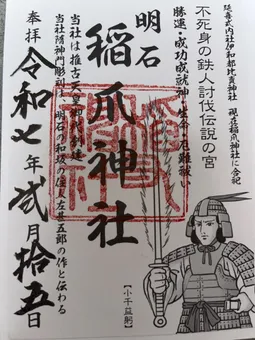 延喜式内社伊和都比売神社 現在稲爪神社に合祀
不死身の鉄人討伐伝説の宮
勝運・成功成就神・生命・厄難祓い
明石
稲爪神社
当社は推古天皇御代創建
当社随神門彫刻、明石の和坂の住人左甚五郎の作と伝わる
奉拝 令和七年弐月拾五日
【小千益躬】